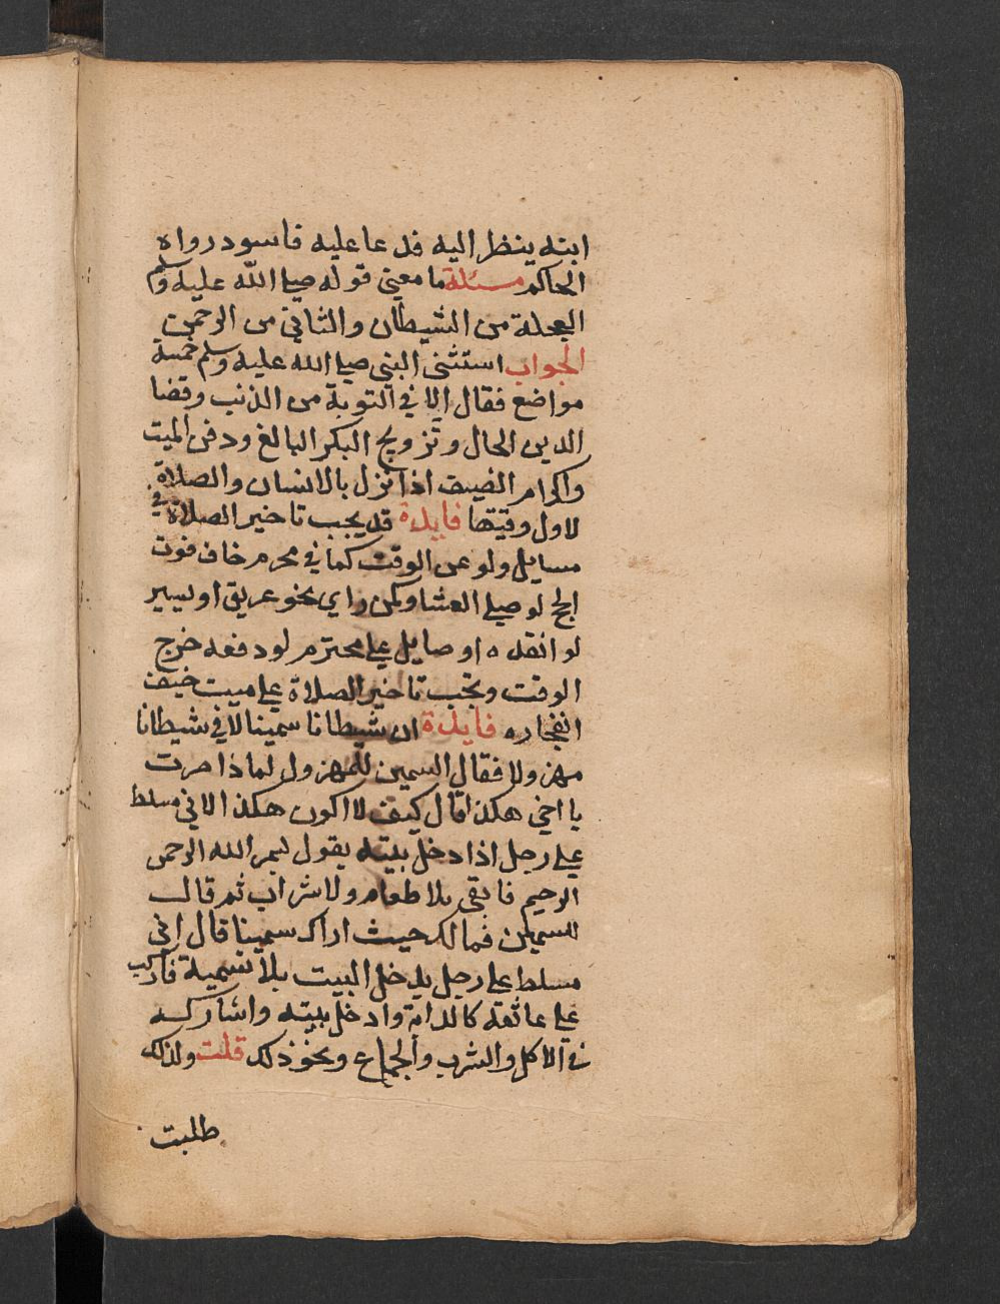 ابنه ينظر اليه فدعا عليه فاسود رواه
الحاكم مسئلة ما معني قوله صلي الله عليه وسلم
العجلة من الشيطان والثاني من الرحمن
الجواب استثني النبي صلي الله عليه وسلم خمسة
مواضع فقال الا في التوبة من الذنب وقضا
الدين الحال وتزويج البكر البالغ ودفن الميت
واكرام الضيف اذا نزل بالانسان والصلاة
لاول وقتها فايدة قد يجب تاخير الصلاة في
مسايل ولو عن الوقت كما في محرم خاف فوت
الحج لو صلي العشا وكمن راي نحو غريق او اسير
لو انقذه او صايل علي محترم لو دفعه خرج
الوقت ويجب تاخير الصلاة علي ميت خيف
انفجاره فايدة ان شيطانا سمينا لاقي شيطانا
مهزولا فقال السمين للمهزول لماذا صرت
يا اخي هكذا قال كيف لا اكون هكذا الاني مسلط
علي رجل اذا دخل بيته يقول بسم الله الرحمن
الرحيم فابقي بلا طعام ولا شراب ثم قال
للسمين فمالك حيث اراك سمينا قال اني
مسلط علي رجل يدخل البيت بلا تسمية فاركب
علي عاتقه كالدابة وادخل بيته واشاركه
في الاكل والشرب والجماع ونحو ذلك قلت ولذلك
طلبت